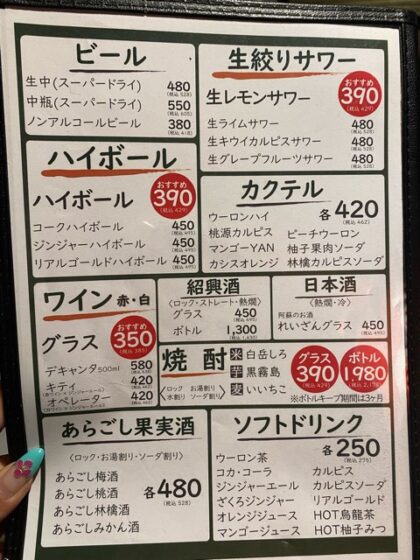 ビール
生中(スーパードライ) 480 (税込 528)
中瓶(スーパードライ) 550 (税込 605)
ノンアルコールビール 380 (税込 418)
生絞りサワー
生レモンサワー おすすめ 390 (税込 429)
生ライムサワー 480 (税込 528)
生キウイカルピスサワー 480 (税込 528)
生グレープフルーツサワー 480 (税込 528)
ハイボール
ハイボール おすすめ 390 (税込 429)
コークハイボール 450 (税込 495)
ジンジャーハイボール 450 (税込 495)
リアルゴールドハイボール 450 (税込 495)
カクテル
ウーロンハイ 各420 (税込 462)
桃源カルピス ピーチウーロン
マンゴーYAN 柚子果肉ソーダ
カシスオレンジ 林檎カルピスソーダ
ワイン 赤・白
グラス おすすめ 350 (税込 385)
デキャンタ500ml 580 (税込 638)
キティ 420 (税込 462)
(赤ワイン×ジンジャーエール)
オペレーター 420 (税込 462)
(白ワイン×ジンジャーエール)
紹興酒
〈ロック・ストレート・熱燗〉
グラス 450 (税込 495)
ボトル 1,300 (税込 1,430)
日本酒
〈熱燗・冷〉
阿蘇のお酒
れいざんグラス 450 (税込 495)
焼酎
〈ロック お湯割り 水割り ソーダ割り〉
米 白岳しろ
芋 黒霧島
麦 いいちこ
グラス 390 (税込 429)
ボトル 1,980 (税込 2,178)
※ボトルキープ期間は3ヶ月
あらごし果実酒
〈ロック・お湯割り・ソーダ割り〉
あらごし梅酒
あらごし桃酒
あらごし林檎酒
あらごしみかん酒
各480 (税込 528)
ソフトドリンク
各250 (税込 275)
ウーロン茶
コカ・コーラ カルピス
ジンジャーエール カルピスソーダ
ざくろジンジャー リアルゴールド
オレンジジュース HOT烏龍茶
マンゴージュース HOT柚子みつ